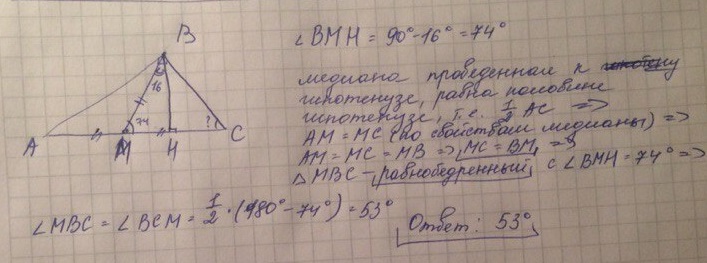 B
16
74
?
A
M
H
C
∠BMH = 90°-16° = 74°
медиана проведенная к
гипотенузе, равна половине
гипотенузе, т.е. 1/2 AC =>
AM = MC (по свойствам медианы) =>
AM = MC = MB => MC = BM, =>
△MBC - равнобедренный с ∠BMH = 74° =>
∠MBC = ∠BCM = 1/2 · (180° - 74°) = 53°
Ответ: 53°